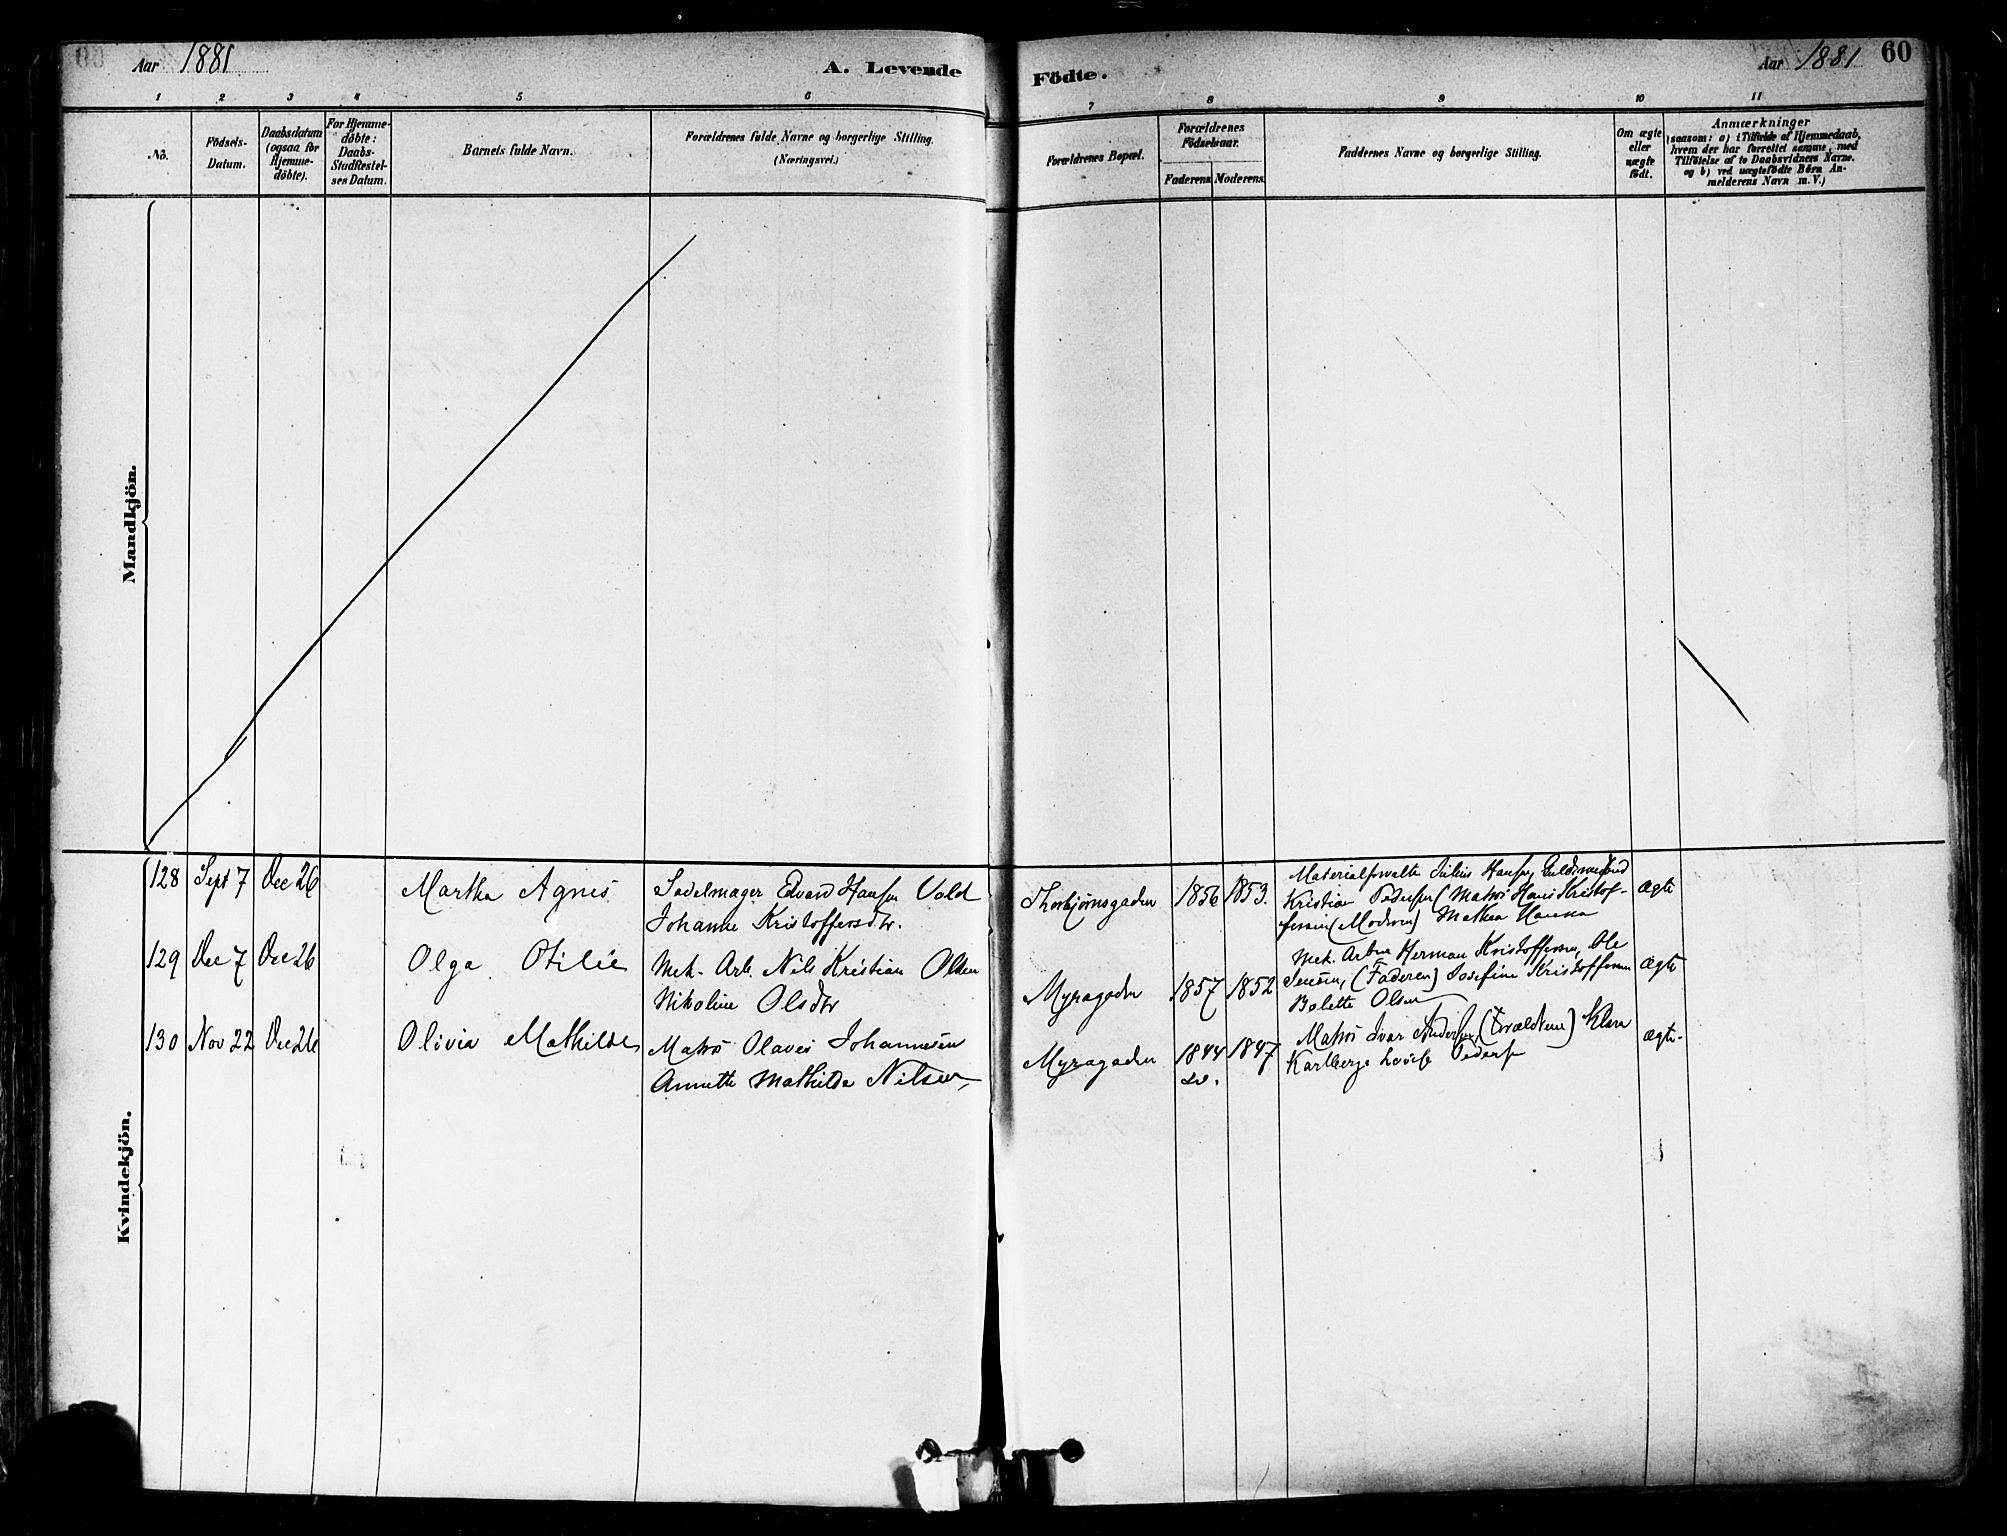 Aar 1881
A. Levende
Födte.
Aar 1881 60
1 2 3 4 5 6 7 8 9 10 11
No.
Födsels-
Datum.
Daabsdatum
(ogsaa for
Hjemme-
döbte).
For Hjemme-
döbte:
Daabs-
Stadfæstel-
ses Datum.
Barnets fulde Navn.
Forældrenes fulde Navne og borgerlige Stilling.
(Næringsvei.)
Forældrenes Bopæl.
Forældrenes
Födselsaar.
Faderens. Moderens.
Faddernes Navne og borgerlige Stilling.
Om ægte
eller
uægte
födt.
Anmærkninger
(saasom: a) i Tilfælde af Hjemmedaab,
hvem der har forrettet samme, med
Tilföielse af to Daabsvidners Navne.
og b) ved uægtefödte Börn An-
melderens Navn m. V.)
Mandkjön.
Kvindekjön.
128 Sept 7 Dec 26 Martha Agnes
Sadelmager Edvard Hansen Vold
Johanne Kristoffersdtr.
Thorbjørnsgaden 1856 1853.
Materialforvalter Julius Hansen,
Kristian Pedersen (Matros Hans Kristof-
fersen (Moderen) Mathea Hansen
ægte
129 Dec 7 Dec 26 Olga Otilie
Mek. Arb. Nils Kristian Olsen
Nikoline Olsdtr
Myragaden 1857 1852
Mek. Arbre Herman Kristoffersen, Ole
Jensen, (Faderen) Josefine Kristoffersen
Bolette Olsen
ægte
130 Nov 22 Dec 26 Olivia Mathilde
Matros Olaves Johannesen
Annette Mathilde Nilsen,
Myragaden 1844 1847
Matros Ivar Andersen, (Forældrene) Klara
Karlberg, Lovise Pedersen
ægte.